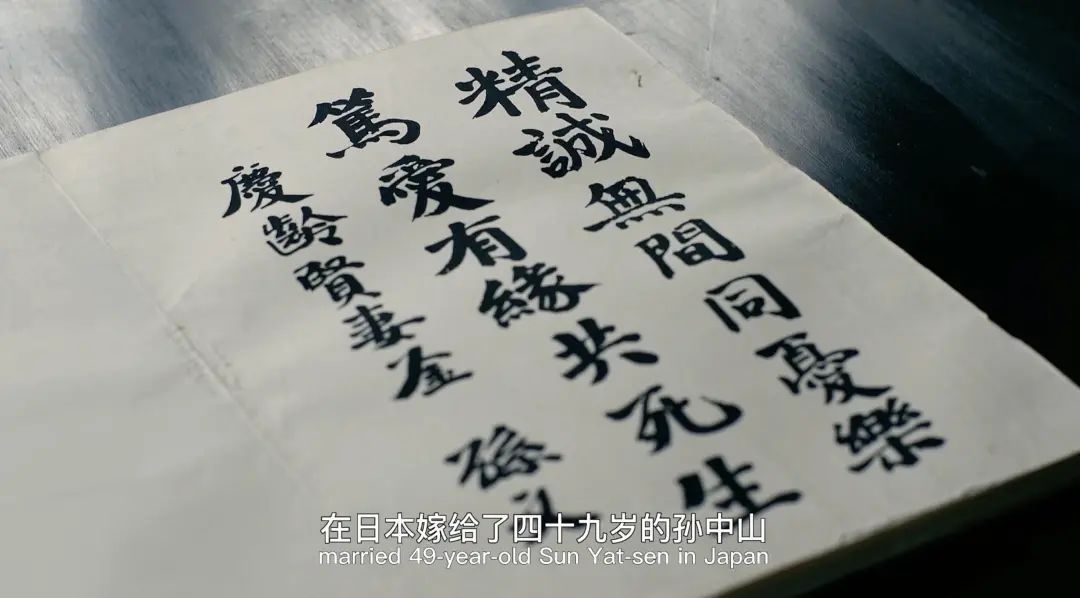 精誠無間同憂樂
篤愛有緣共死生
慶齡賢妻鉴 孫文
在日本嫁给了四十九岁的孙中山
married 49-year-old Sun Yat-sen in Japan